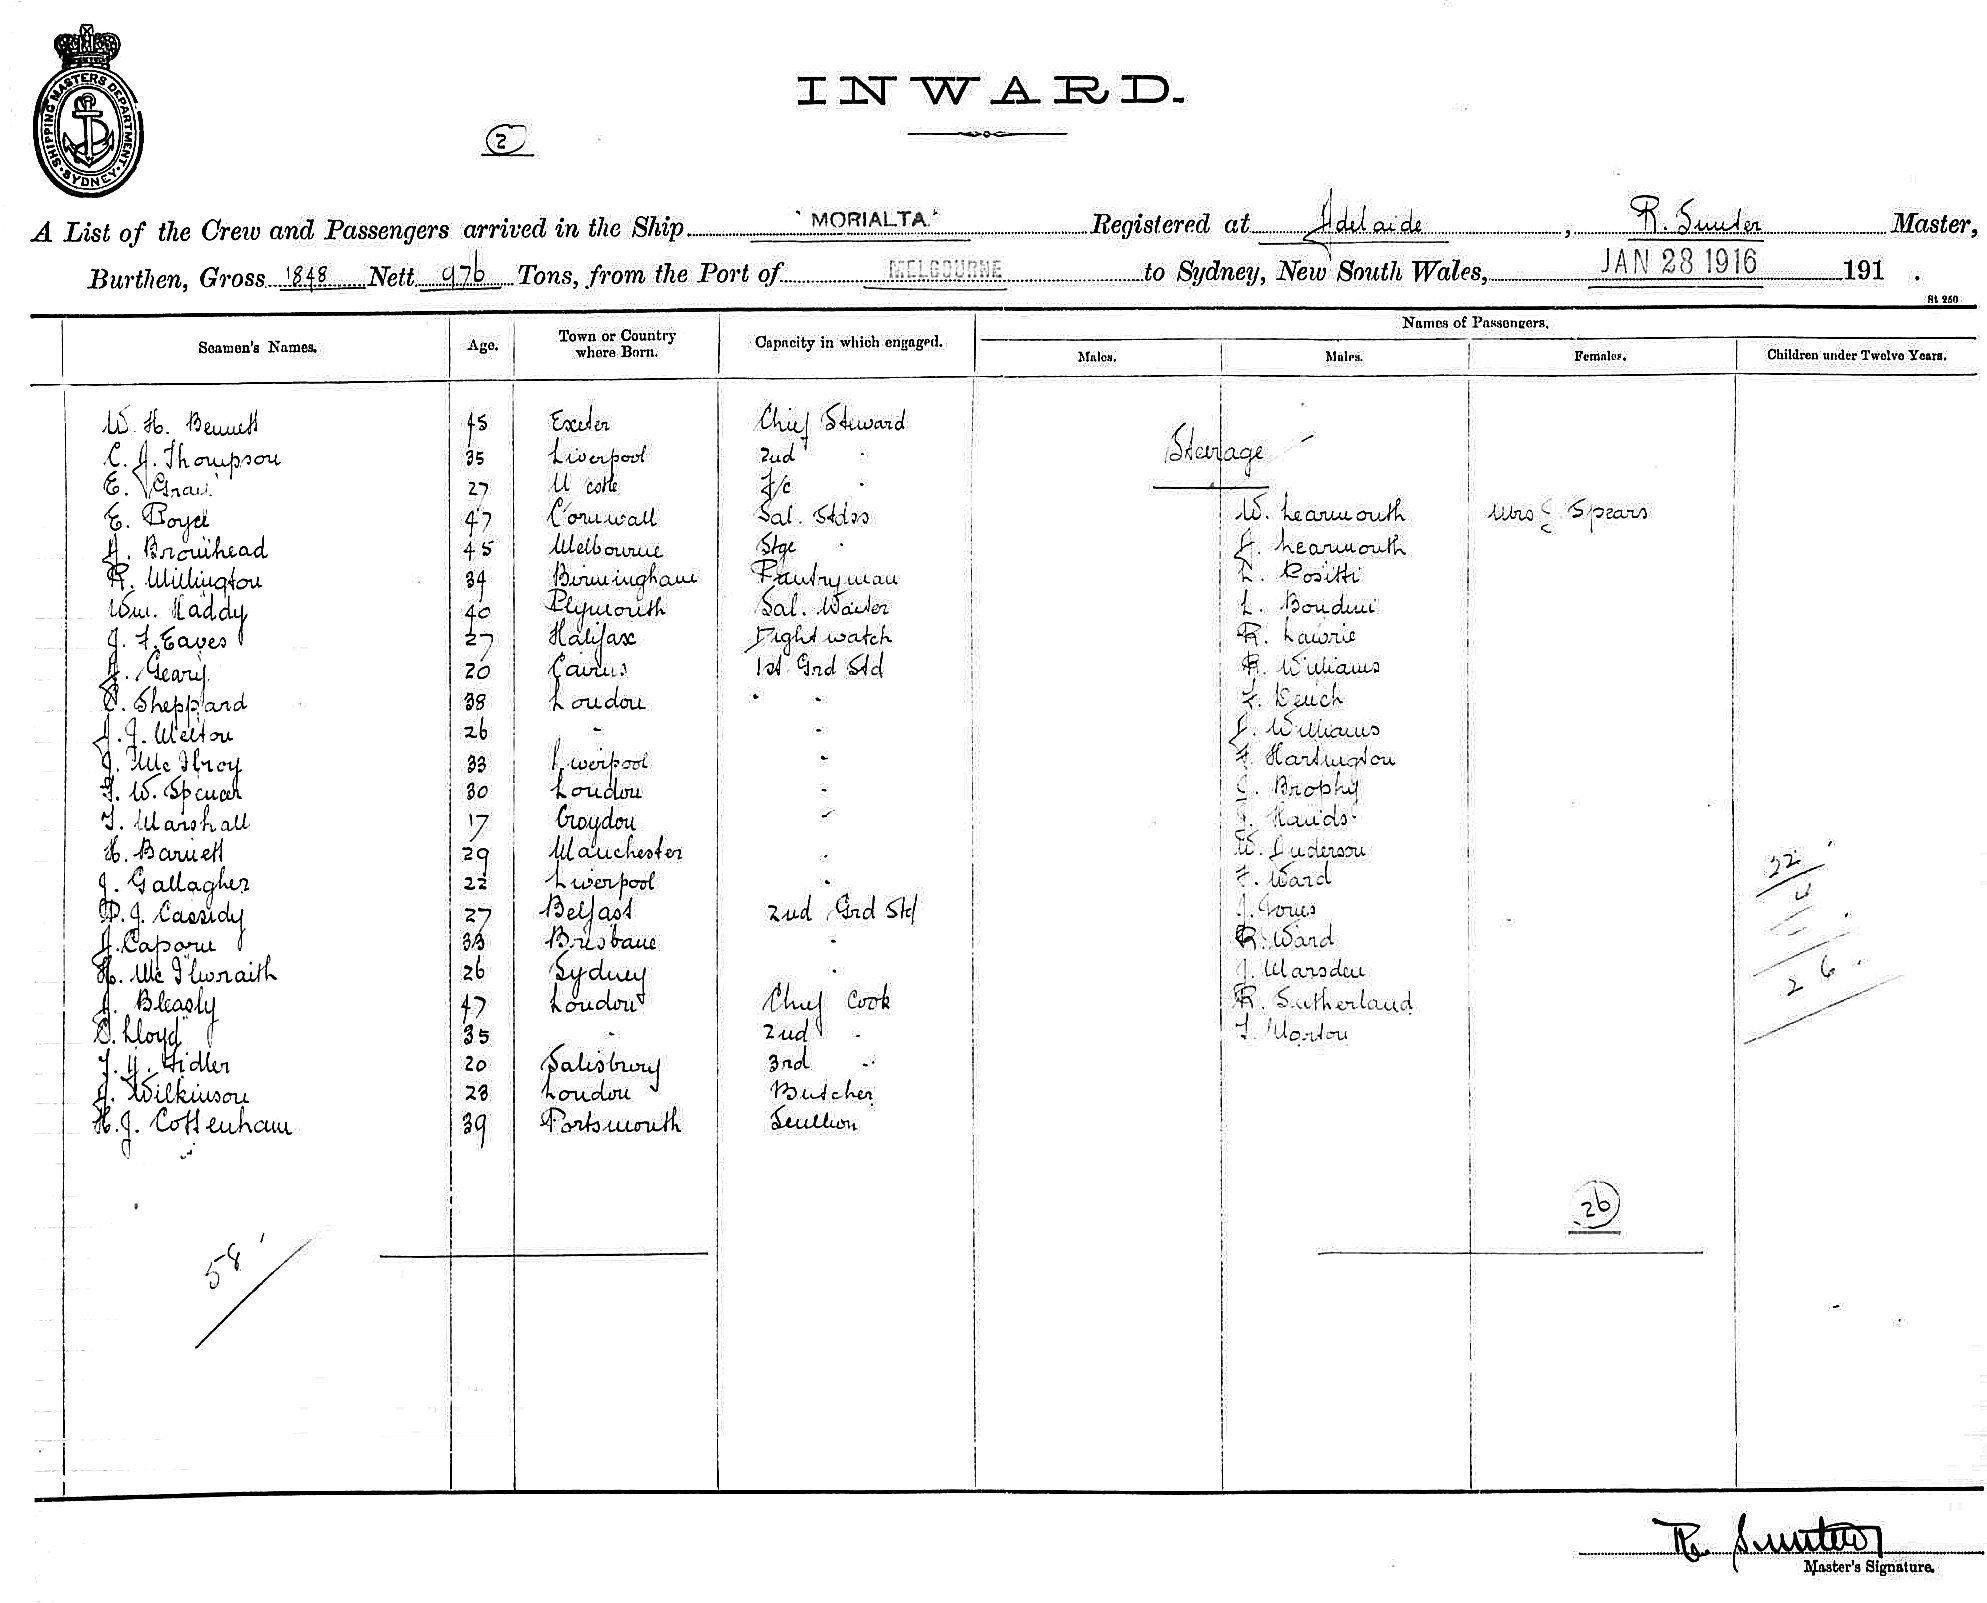 SHIPPING MASTERS DEPARTMENT. SYDNEY.
INWARD.
2
A List of the Crew and Passengers arrived in the Ship "MORIALTA" Registered at Adelaide, R. Sunter Master,
Burthen, Gross 1848 Nett 976 Tons, from the Port of MELBOURNE to Sydney, New South Wales, JAN 28 1916 191 .
St 250
Names of Passengers.
Seamen's Names. Age. Town or Country where Born. Capacity in which engaged. Males. Males. Females. Children under Twelve Years.
W. H. Bennett 45 Exeter Chief Steward
Steerage
C. J. Thompson 35 Liverpool 2nd "
E. Gray 27 N'castle F/c "
E. Boyce 47 Cornwall Sal. Stdss W. Learmouth Mrs J. Spears
A. Bromhead 45 Melbourne Stge " A. Learmouth
R. Willington 34 Birmingham Pantryman L. Positti
Wm. Haddy 40 Plymouth Sal. Waiter L. Bondini
J. F. Eaves 27 Halifax Nightwatch R. Lawrie
A. Geary 20 Cairns 1st Grd Std R. Williams
C. Sheppard 38 London " " F. Dench
A. J. Melton 26 " " J. Williams
J. McIlroy 33 Liverpool " F. Hartington
F. W. Spencer 30 London " J. Brophy
T. Marshall 17 Croydon " J. Hands
H. Barnett 29 Manchester " W. Anderson
J. Gallagher 22 Liverpool " F. Ward
P. J. Cassidy 27 Belfast 2nd Grd Std J. Jones
A. Caporn 33 Brisbane " R. Ward
H. McIlwraith 26 Sydney " J. Marsden
A. Bleasly 47 London Chief Cook R. Sutherland
C. Lloyd 35 " 2nd " T. Morton
T. H. Fidler 20 Salisbury 3rd "
A. Wilkinson 28 London Butcher
H. J. Cottenham 39 Portsmouth Scullion
22
4
26
26
58
R. Sunter
Master's Signature.